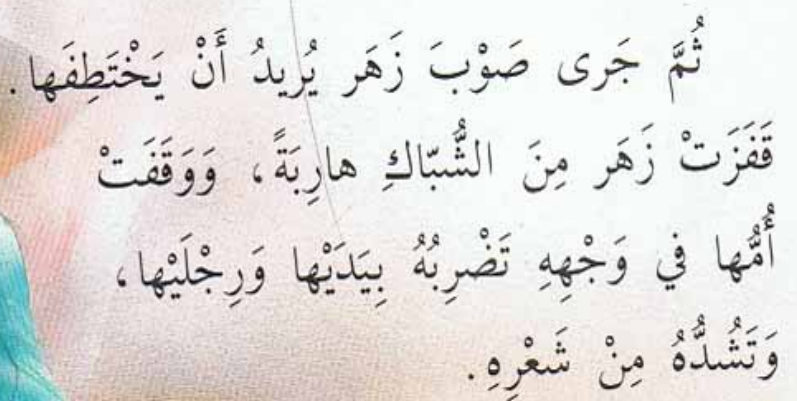 ثُمَّ جَرى صَوْبَ زَهَر يُريدُ أَنْ يَخْتَطِفَها.
قَفَزَتْ زَهَر مِنَ الشُّبّاكِ هارِبَةً، وَوَقَفَتْ
أُمُّها في وَجْهِهِ تَضْرِبُهُ بِيَدَيْها وَرِجْلَيْها،
وَتَشُدُّهُ مِنْ شَعْرِهِ.